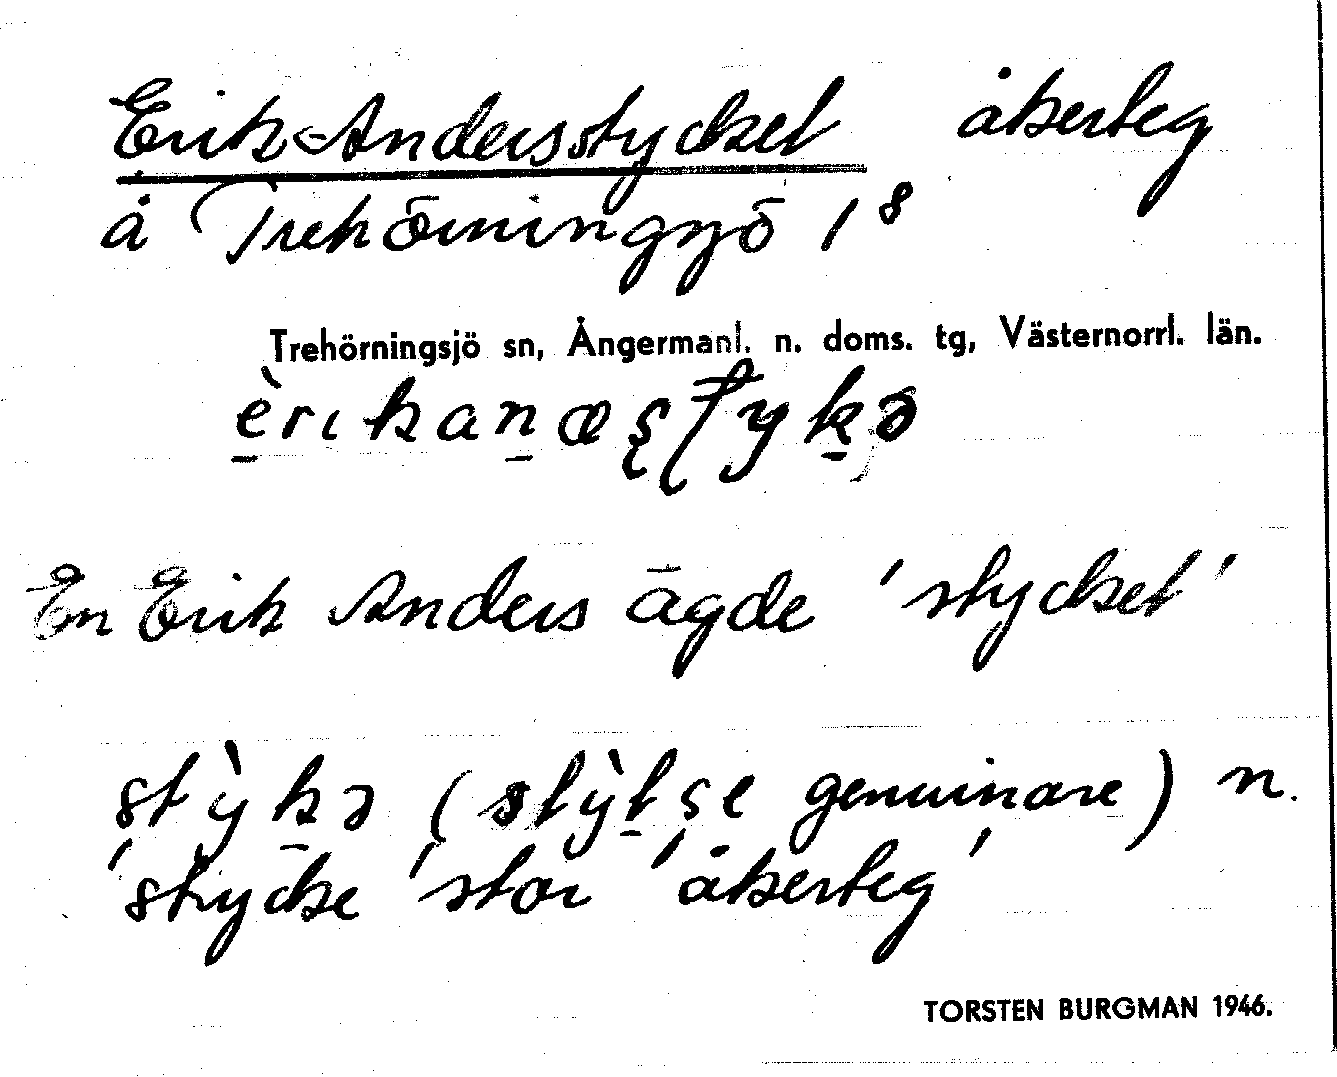 Erik-Andersstycket åkerteg
å Trehörningsjö 1⁸
Trehörningsjö sn, Ångermanl. n. doms. tg, Västernorrl. län.
En Erik Anders ägde 'stycket'
(genuinare) n.
'stycke' stor 'åkerteg'
TORSTEN BURGMAN 1946.